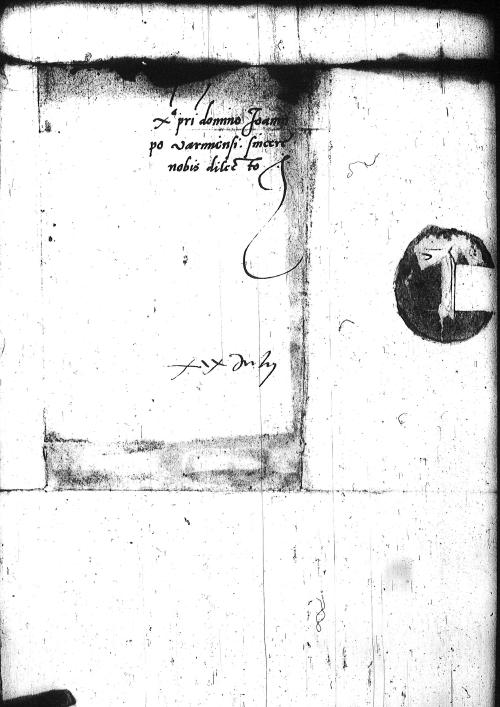 X͠ pri domino Joann
po Varmiensi. sincere
nobis dilecto
xix July